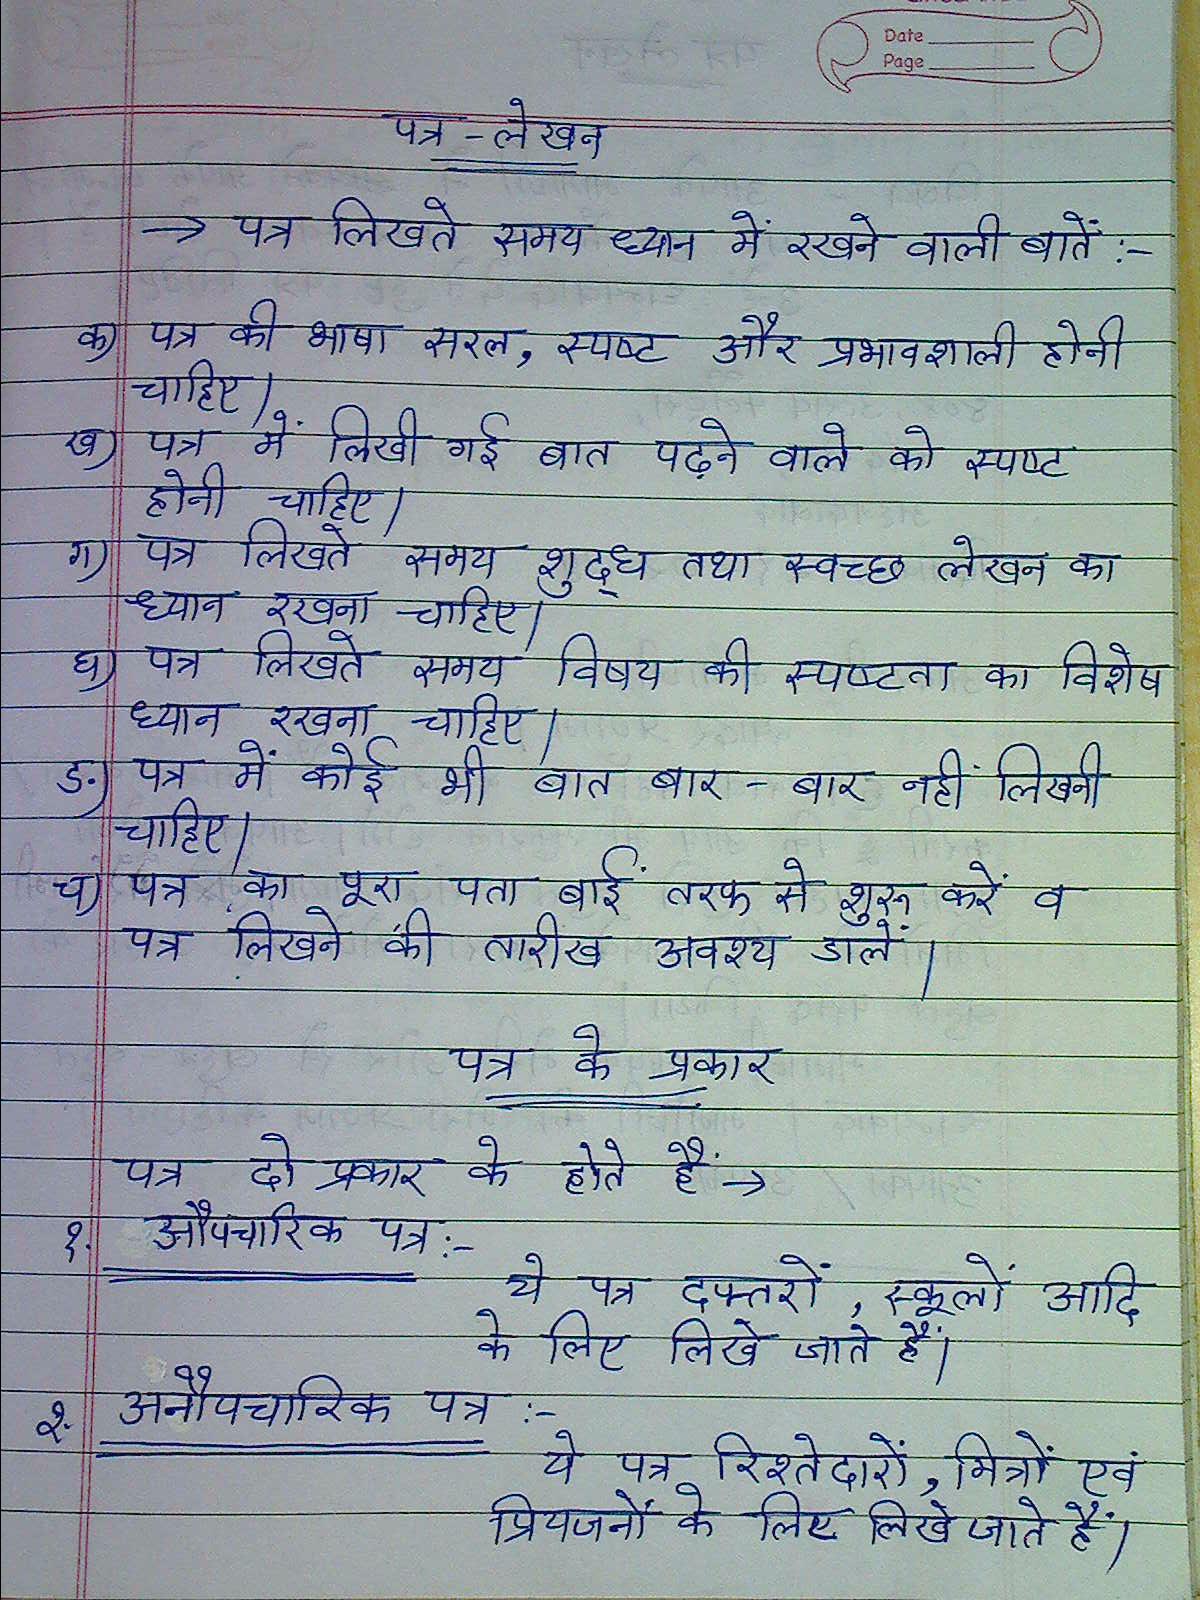 Date
Page
पत्र - लेखन
→ पत्र लिखते समय ध्यान में रखने वाली बातें :-
क) पत्र की भाषा सरल, स्पष्ट और प्रभावशाली होनी
चाहिए।
ख) पत्र में लिखी गई बात पढ़ने वाले को स्पष्ट
होनी चाहिए।
ग) पत्र लिखते समय शुद्ध तथा स्वच्छ लेखन का
ध्यान रखना चाहिए।
घ) पत्र लिखते समय विषय की स्पष्टता का विशेष
ध्यान रखना चाहिए।
ङ) पत्र में कोई भी बात बार - बार नहीं लिखनी
चाहिए।
च) पत्र का पूरा पता बाईं तरफ से शुरू करें व
पत्र लिखने की तारीख अवश्य डालें।
पत्र के प्रकार
पत्र दो प्रकार के होते हैं →
१. औपचारिक पत्र :-
ये पत्र दफ्तरों, स्कूलों आदि
के लिए लिखे जाते हैं।
२. अनौपचारिक पत्र :-
ये पत्र रिश्तेदारों, मित्रों एवं
प्रियजनों के लिए लिखे जाते हैं।